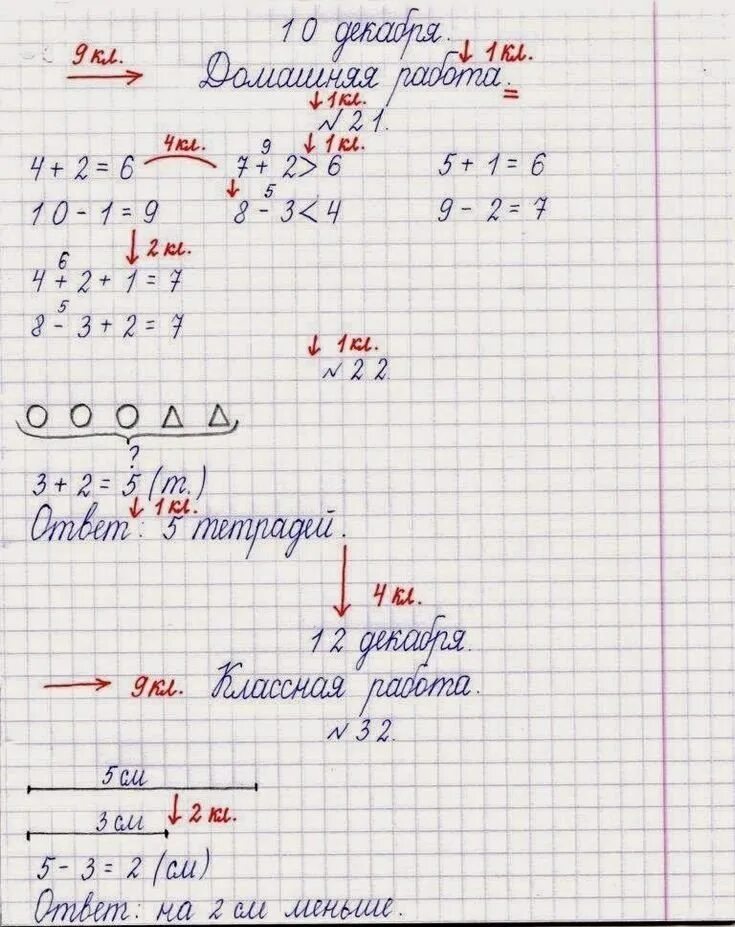 10 декабря.
9 кл. ↓ 1 кл.
Домашняя работа.
↓ 1 кл.
№ 21.
4 кл. 9 ↓ 1 кл.
4 + 2 = 6 7 + 2 > 6 5 + 1 = 6
↓ 5
10 - 1 = 9 8 - 3 < 4 9 - 2 = 7
↓ 2 кл.
6
4 + 2 + 1 = 7
5
8 - 3 + 2 = 7
↓ 1 кл.
№ 22
?
3 + 2 = 5 (т.)
↓ 1 кл.
Ответ: 5 тетрадей.
4 кл.
12 декабря.
9 кл. Классная работа.
№ 32.
5 см
3 см ↓ 2 кл.
5 - 3 = 2 (см)
Ответ: на 2 см меньше.